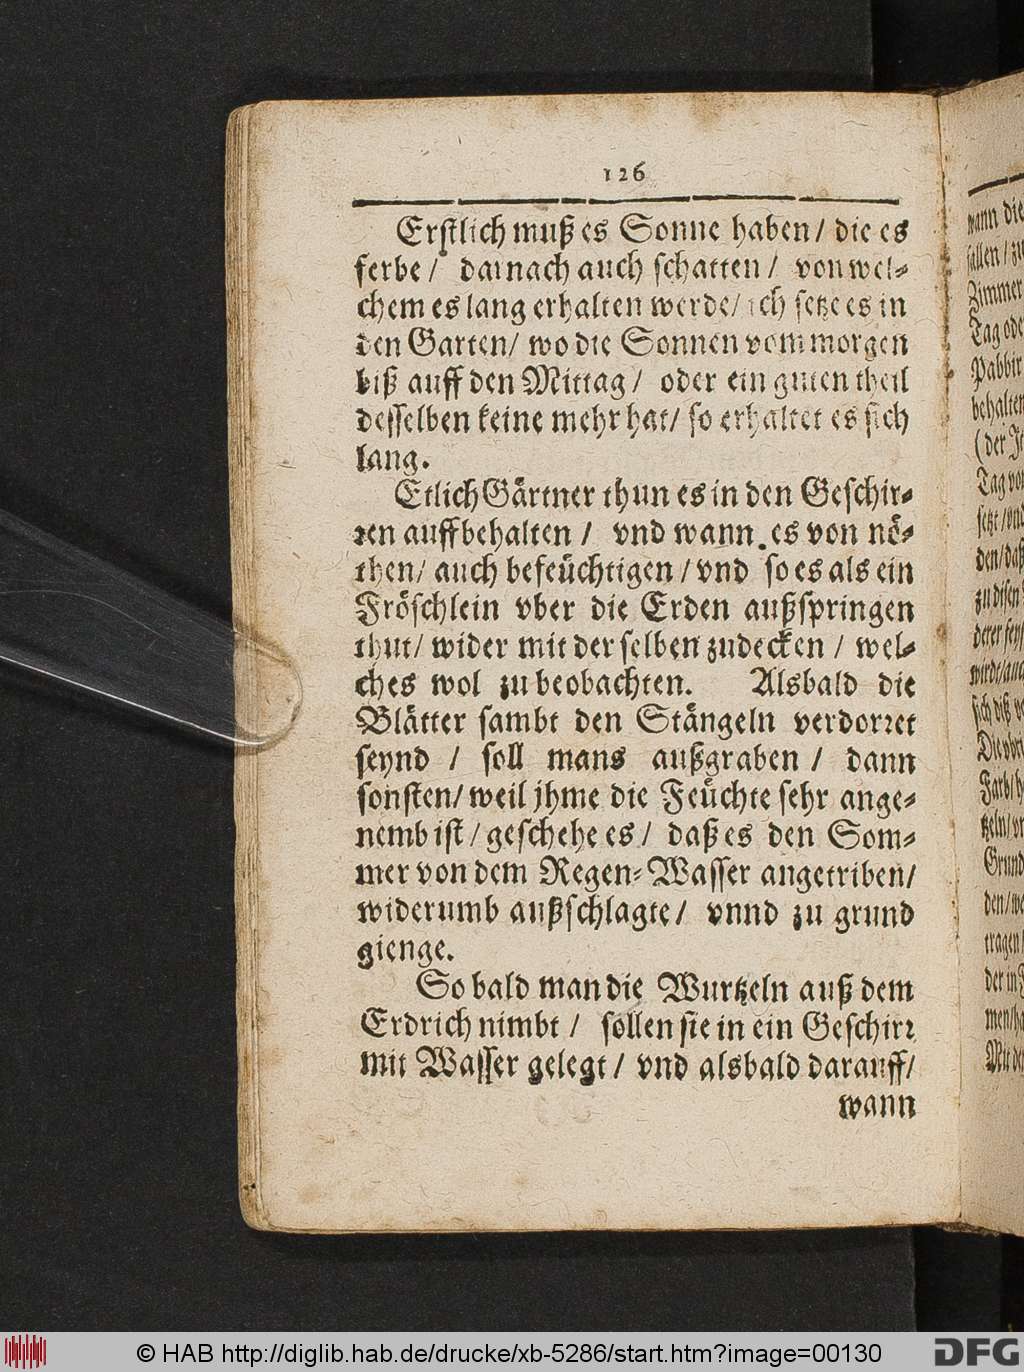 126
Erstlich muß es Sonne haben / die es
ferbe / darnach auch schatten / von wel-
chem es lang erhalten werde / ich setze es in
den Garten / wo die Sonnen vom morgen
biß auff den Mittag / oder ein guten theil
desselben keine mehr hat / so erhaltet es sich
lang.
Etlich Gärtner thun es in den Geschir-
ren auffbehalten / vnd wann es von nö-
then / auch befeüchtigen / vnd so es als ein
Fröschlein vber die Erden außspringen
thut / wider mit der selben zudecken / wel-
ches wol zu beobachten. Alsbald die
Blätter sambt den Stängeln verdorret
seynd / soll mans außgraben / dann
sonsten / weil jhme die Feüchte sehr ange-
nemb ist / geschehe es / daß es den Som-
mer von dem Regen-Wasser angetriben /
widerumb außschlagte / vnnd zu grund
gienge.
So bald man die Wurtzeln auß dem
Erdrich nimbt / sollen sie in ein Geschirr
mit Wasser gelegt / vnd alsbald darauff /
wann
wann die
fallen / zu
Zimmer
Tag ode
Pabbir
behalten
(der J
Tag vo
setzt / vnd
den / daß
zu disen
derer sey
wirdt / auc
sich diß v
Die vbri
Farb / h
tzeln / vn
Grund
den / we
tragen /
der in
men / ha
Mit de
© HAB http://diglib.hab.de/drucke/xb-5286/start.htm?image=00130
DFG